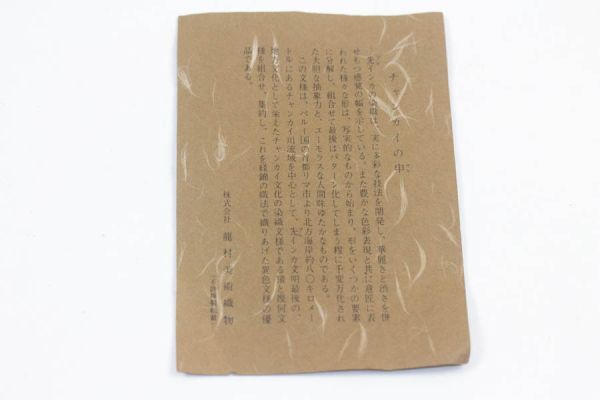 チャンカイの申
先インカの染織は、実に多彩な技法を開発し、華麗さと渋さを併
せもつ感覚の幅を示している。また豊かな色彩表現と共に意匠に表
われた様々な形は、写実的なものから始まり、形をいくつかの要素
に分解し、組合せて最後はパターン化してしまう程に千変万化され
た大胆な抽象力と、ユーモラスな人間味ゆたかなものである。
この文様は、ペルー国の首都リマ市より北方海岸約八〇キロメー
トルにあるチャンカイ川流域を中心として、先インカ文明最後の、
地方文化として栄えたチャンカイ文化の染織文様である猿と幾何文
様を組合せ、集約し、これを経錦の織法で織りあげた異色文様の優
品である。
株式会社 龍村美術織物
(不許複製転載)